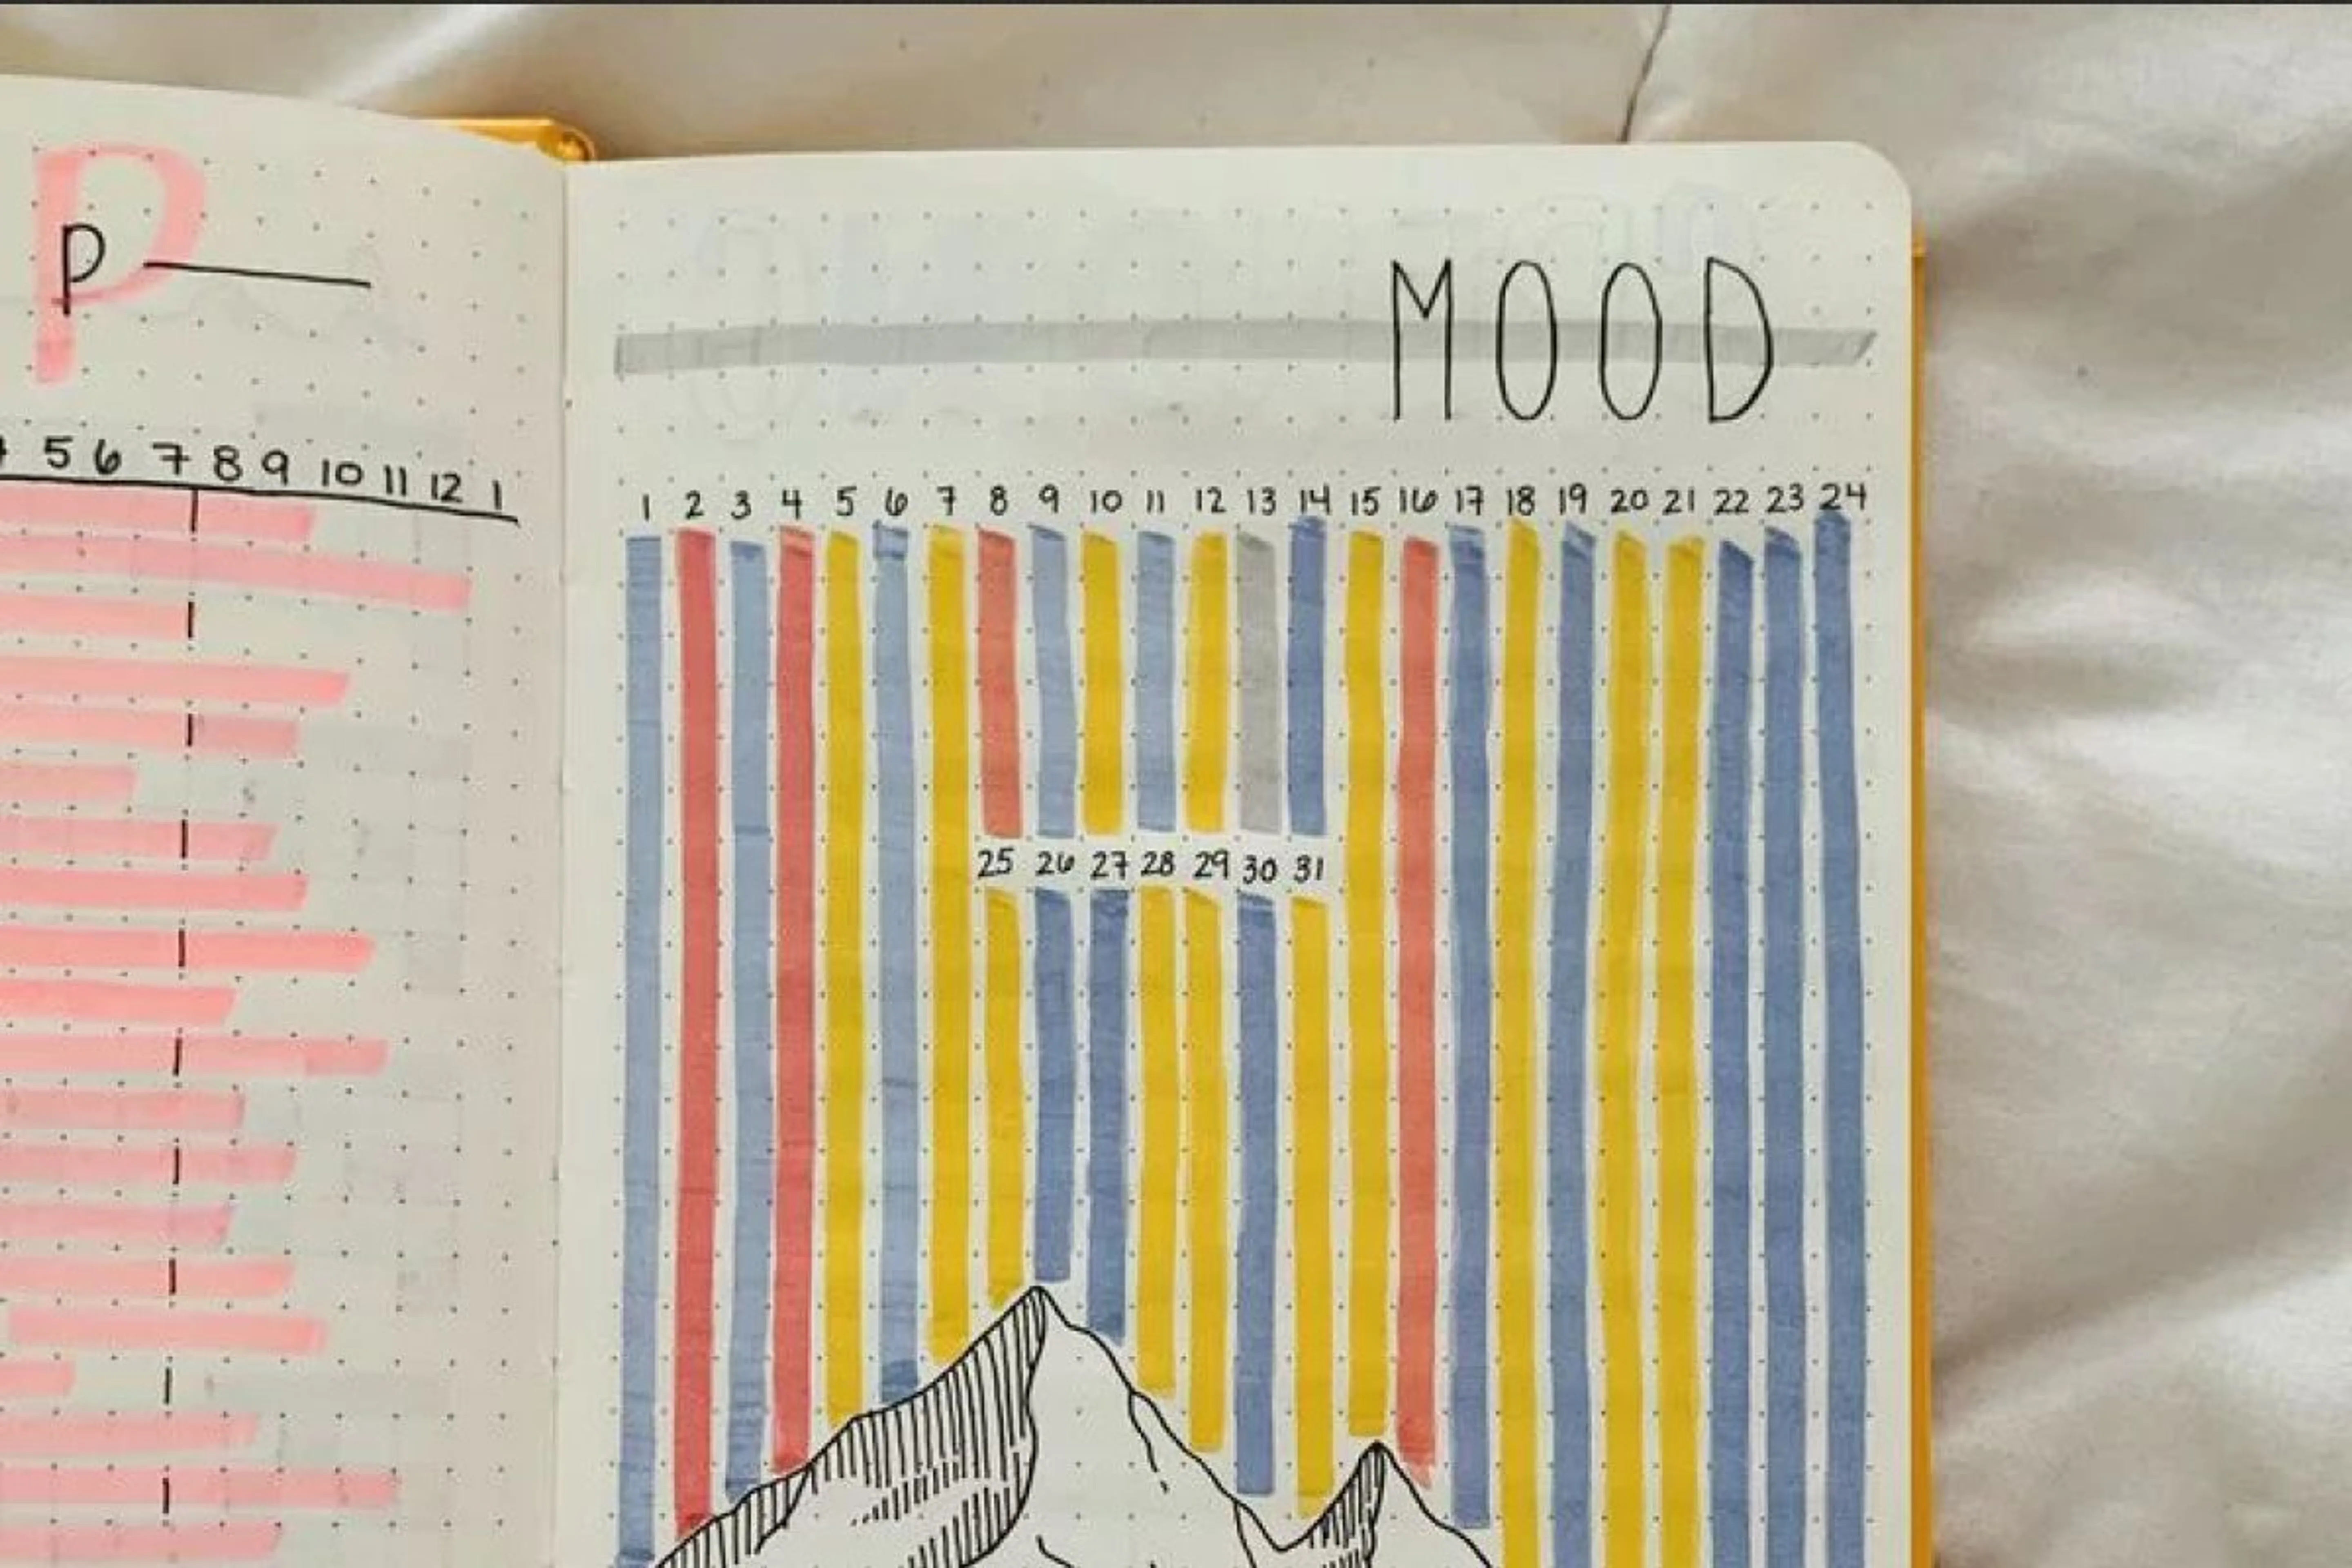 P
p
5 6 7 8 9 10 11 12 1
MOOD
1 2 3 4 5 6 7 8 9 10 11 12 13 14 15 16 17 18 19 20 21 22 23 24
25 26 27 28 29 30 31